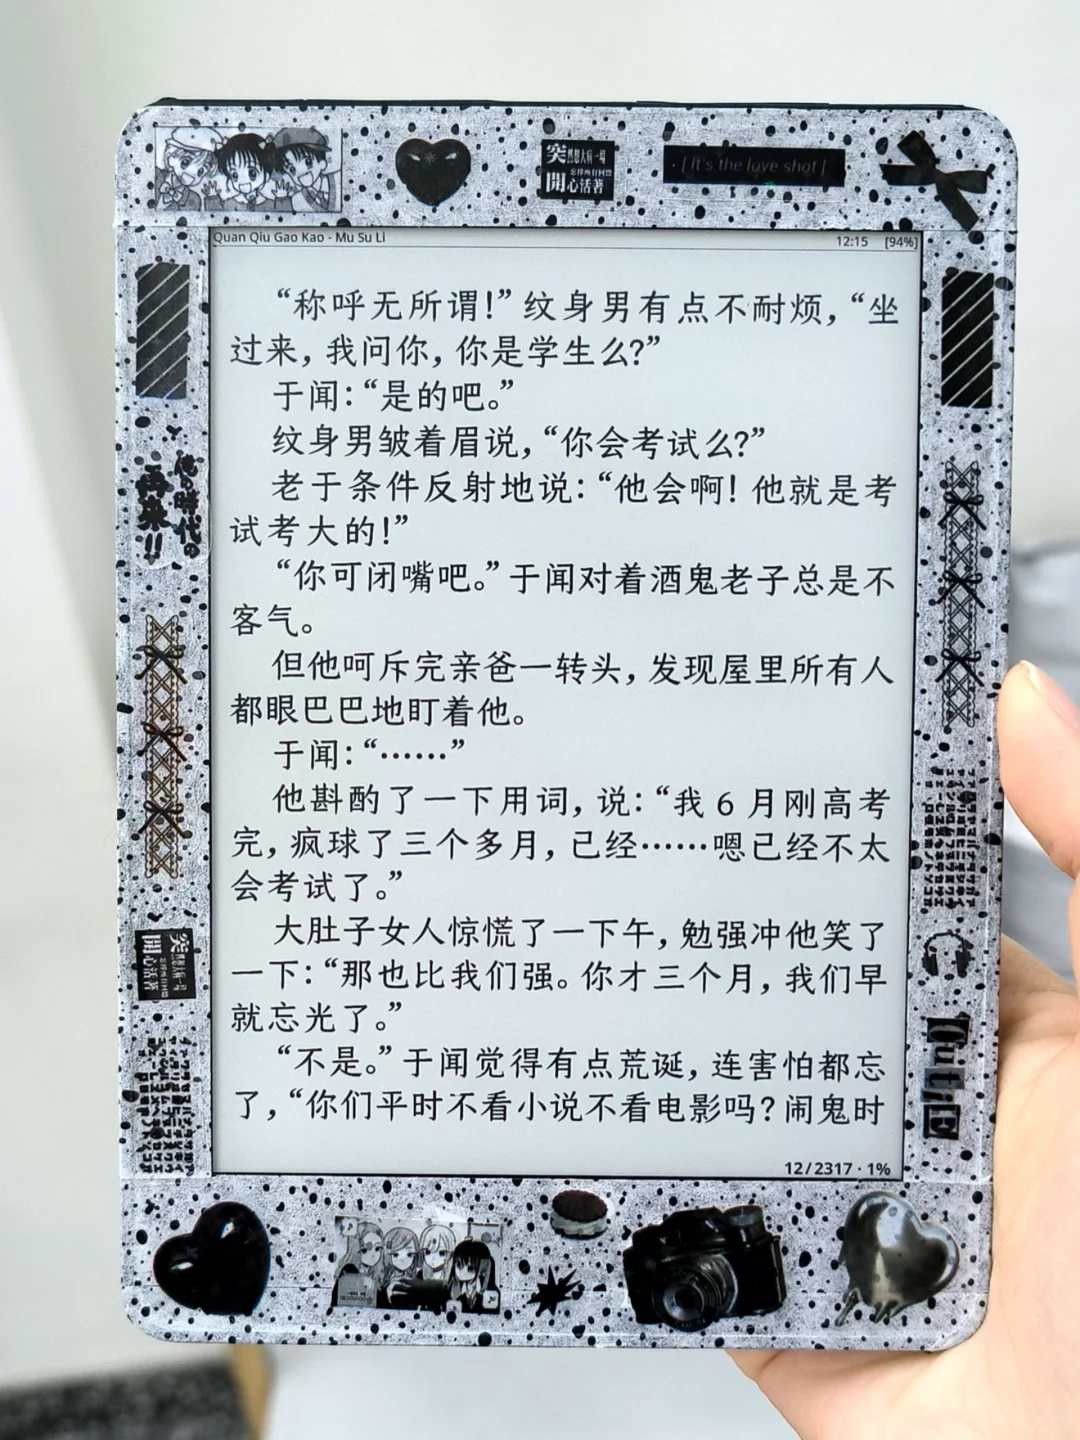 突然想大病一場
忘掉所有回憶
開心活著
[It's the love shot]
Quan Qiu Gao Kao - Mu Su Li 12:15 [94%]
“称呼无所谓！”纹身男有点不耐烦，“坐
过来，我问你，你是学生么？”
于闻：“是的吧。”
纹身男皱着眉说，“你会考试么？”
老于条件反射地说：“他会啊！他就是考
试考大的！”
“你可闭嘴吧。”于闻对着酒鬼老子总是不
客气。
但他呵斥完亲爸一转头，发现屋里所有人
都眼巴巴地盯着他。
于闻：“……”
他斟酌了一下用词，说：“我 6 月刚高考
完，疯球了三个多月，已经……嗯已经不太
会考试了。”
大肚子女人惊慌了一下午，勉强冲他笑了
一下：“那也比我们强。你才三个月，我们早
就忘光了。”
“不是。”于闻觉得有点荒诞，连害怕都忘
了，“你们平时不看小说不看电影吗？闹鬼时
12/2317 · 1%
CutiE